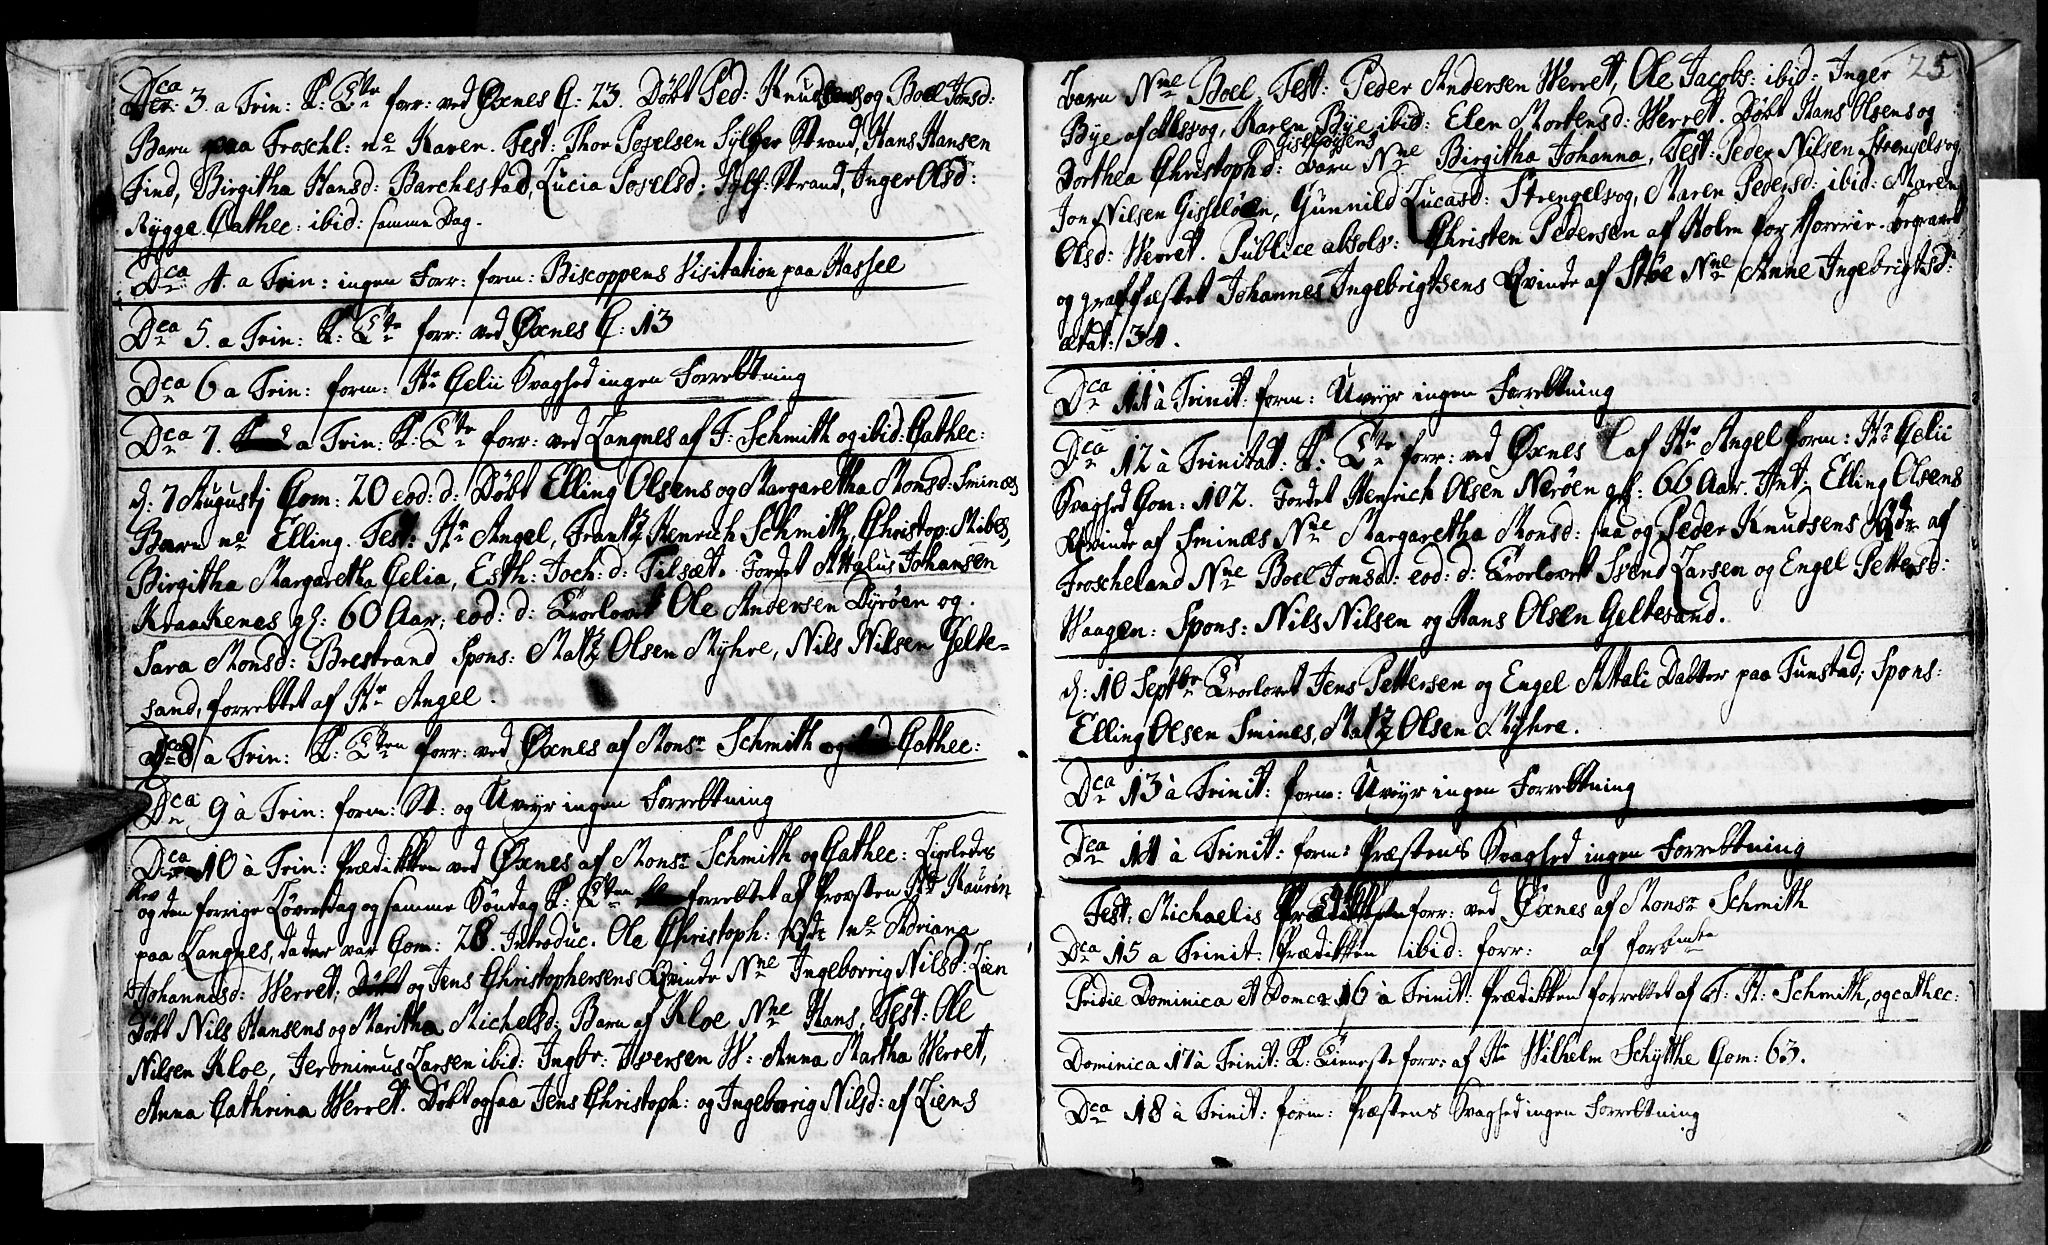 Dca 3. a Trin: K: Tste forr: ved Øxnes C: 23. Døbt Ped: Knudsens og Boel Jonsd:
Barn paa Froschl: ne Karen. Test: Thor Joselsen Sylfer Strand, Hans Hansen
Find, Birgitha Hansd: Barchestad, Lucia Joselsd: Sylf: Strand, Inger Olsd:
Rygge. Cathec: ibid: samme Dag.
Dca 4. a Trin: ingen Forr: form: Biscoppens Visitation paa Hassel
Dca 5. a Trin: K: Tste forr: ved Øxnes C: 13
Dca 6 a Trin: form: Hr Celii Svaghed ingen Forrettning
Dca 7. a Trin: K: Tste forr: ved Langnes af F: Schmith og ibid: Cathec:
d: 7 Augustj Com: 20 eod: d: Døbt Elling Olsens og Margaretha Monsd: Sminæs
Barn ne Elling. Test: Hr Angel, Frantz Henrich Schmith, Christop: Mibes,
Birgitha Margaretha Celia, Esth: Joch: d: Tilsæt. Jordet Attalus Johansen
Kraakenes gl: 60 Aar; eod: d: Trolovet Ole Andersen Dyrøen og
Sara Monsd: Brestrand Spons: Matz Olsen Myhre, Nils Nilsen Gelte-
sand, forrettet af Hr Angel.
Dca 8 a Trin: K: Tsten forr: ved Øxnes af Monsr Schmith og ibid Cathec:
Dca 9 à Trin: form: St: og Uveyr ingen Forrettning
Dca 10 à Trin: Prædikken ved Øxnes af Monsr Schmith og Cathec: Ligeledes
og den forrige Løverdag og samme Søndag K: Tsten forrettet af Provsten Hr Kaurin
paa Langnes, da der var Com: 28. Introduc. Ole Christoph: Qvde ne Adriana
Johannesd: Werret; og Jens Christophersens Qvinde Nne Ingeborrig Nilsd: Lien
Døbt Nils Hansens og Maritha Michelsd: Barn af Kloe Nne Hans, Test: Ole
Nilsen Kloe, Jeronimus Larsen ibid: Ingbr: Iversen W: Anna Martha Werret,
Anna Cathrina Werret. Døbt ogsaa Jens Christoph: og Ingeborrig Nilsd: af Liens
25
Barn Nne Boel, Test: Peder Andersen Werret, Ole Jacobs: ibid: Inger
Bye af Alsvog, Karen Bye ibid: Elen Mortensd: Werret. Døbt Hans Olsens og
Dorthea Christophd: Gisløens Barn Nne Birgitha Johanna, Test: Peder Nilsen Strengelsvog
Jon Nilsen Gissløen, Gunnild Lucasd: Strengelsvog, Maren Pedersd: ibid: Maren
Olsd: Werret. Publice absolv: Christen Pedersen af Holm for Horrerie. Begravet
og graffæstet Johannes Ingebrigtsens Qvinde af Støe Nne Anne Ingebrigtsd:
ætat: 34.
Dca 11 à Trinit: form: Uveyr ingen Forrettning
Dca 12 à Trinitat: K: Tste forr: ved Øxnes af Hr Angel form: Hr Celii
Svaghed Com: 102. Jordet Henrich Olsen Nerøen gl: 66 Aar. Int: Elling Olsens
Qvinde af Sminæs Nne Margaretha Monsd: saa og Peder Knudsens Qvde af
Froscheland Nne Boel Jonsd: eod: d: Trolovet Svend Larsen og Engel Pettersd:
Waagen: Spons: Nils Nilsen og Hans Olsen Geltesand.
d: 10 Septbr Trolovet Jens Pettersen og Engel Attali Datter paa Tunstad; Spons:
Elling Olsen Smines, Matz Olsen Myhre.
Dca 13 à Trinit: form: Uveyr ingen Forrettning
Dca 14 à Trinit: form: Præstens Svaghed ingen Forrettning
Fest: Michaelis Prædikken forr: ved Øxnes af Monsr Schmith
Dca 15 a Trinit: Prædikken ibid: forr: af forbemte
Pridie Dominica et Domca 16 à Trinit: Prædikken forrettet af F: H: Schmith, og cathec:
Dominica 17 à Trinit: K: Tieneste forr: af Hr Wilhelm Schytthe Com: 63.
Dca 18 à Trinit: form: Præstens Svaghed ingen Forrettning